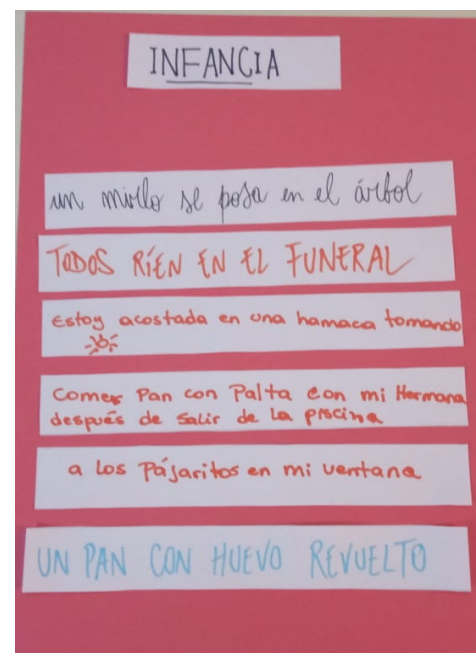 INFANCIA
un mirlo se posa en el árbol
TODOS RÍEN EN EL FUNERAL
Estoy acostada en una hamaca tomando
Comer Pan con Palta con mi Hermana
después de Salir de la piscina
a los Pájaritos en mi ventana
UN PAN CON HUEVO REVUELTO